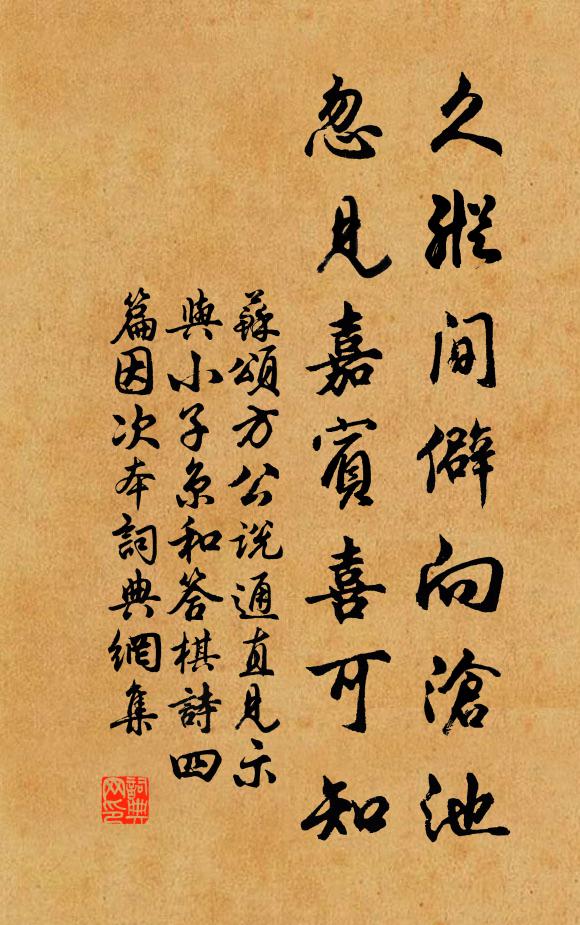 久縱閒僻向滄池
忽見嘉賓喜可知
蘇頌方公說通直見示
與小子京和答棋詩四
篇因次本詞典網集
詞典网印